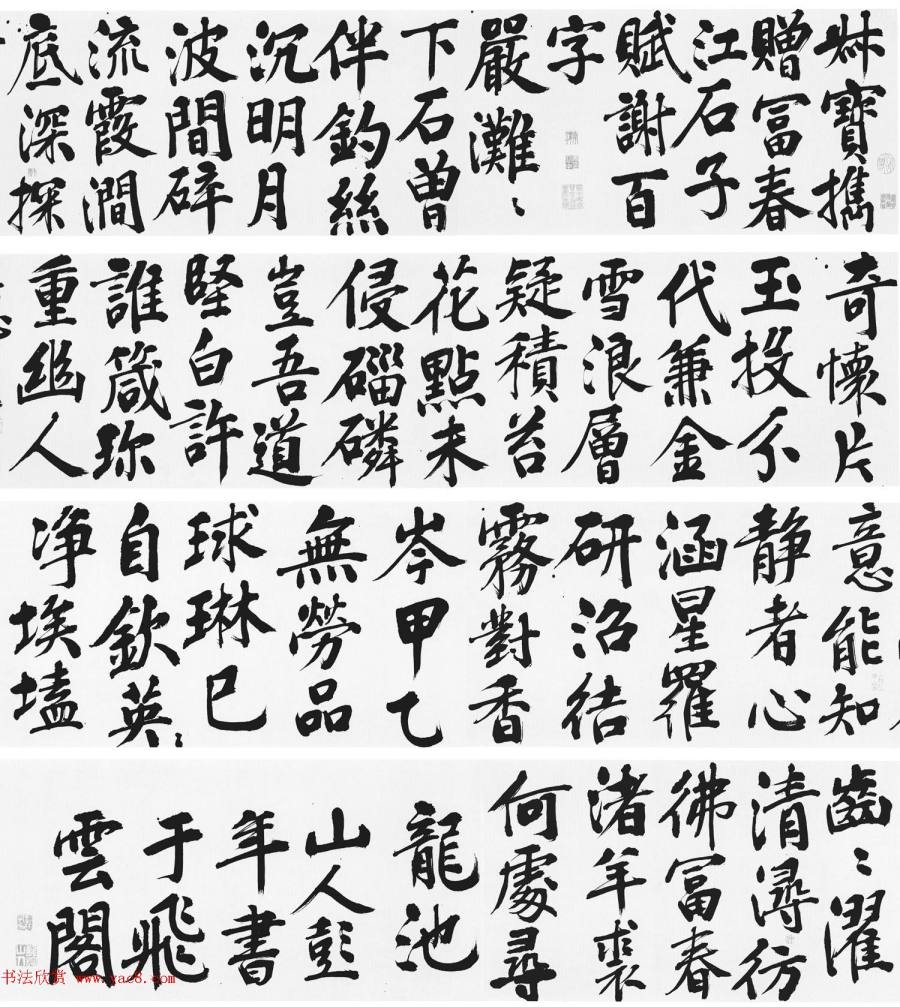 叔寶攜
贈富春
江石子
賦謝百
字
嚴灘〻
下石曾
伴釣絲
沉明月
波間碎
流霞澗
底深探
奇懷片
玉投不
代兼金
雪浪層
疑積苔
花點未
侵碯磷
豈吾道
堅白許
誰箴珎
重幽人
意能知
靜者心
涵星羅
研沼結
霧對香
岑甲乙
無勞品
球琳已
自欽英〻
净埃壒
齒〻濯
清潯彷
彿富春
渚羊裘
何處尋
龍池
山人彭
年書
于飛
雲閣
书法欣赏 www.yac8.com